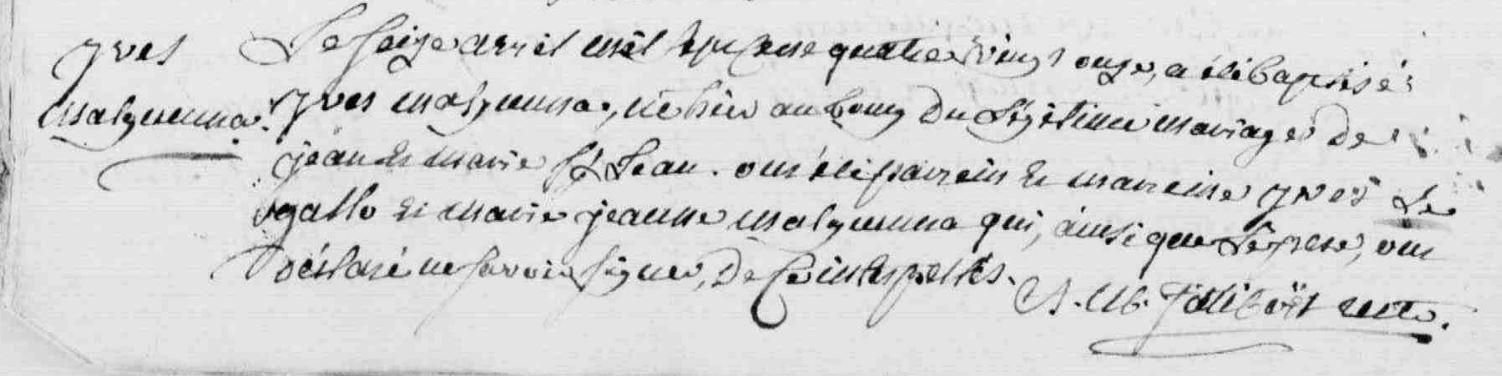 yves
malguenna.
Le seize avril mil sept cens quatre vingt onze, a été baptisé
yves malguenna, né hier au bourg du légitime mariage de
jean et marie St Jean. ont été parrein et marreine yves Le
gallo et marie jeanne malguenna qui, ainsi que Le pere, ont
déclaré ne savoir signer, de ce interpellés.
recteur.